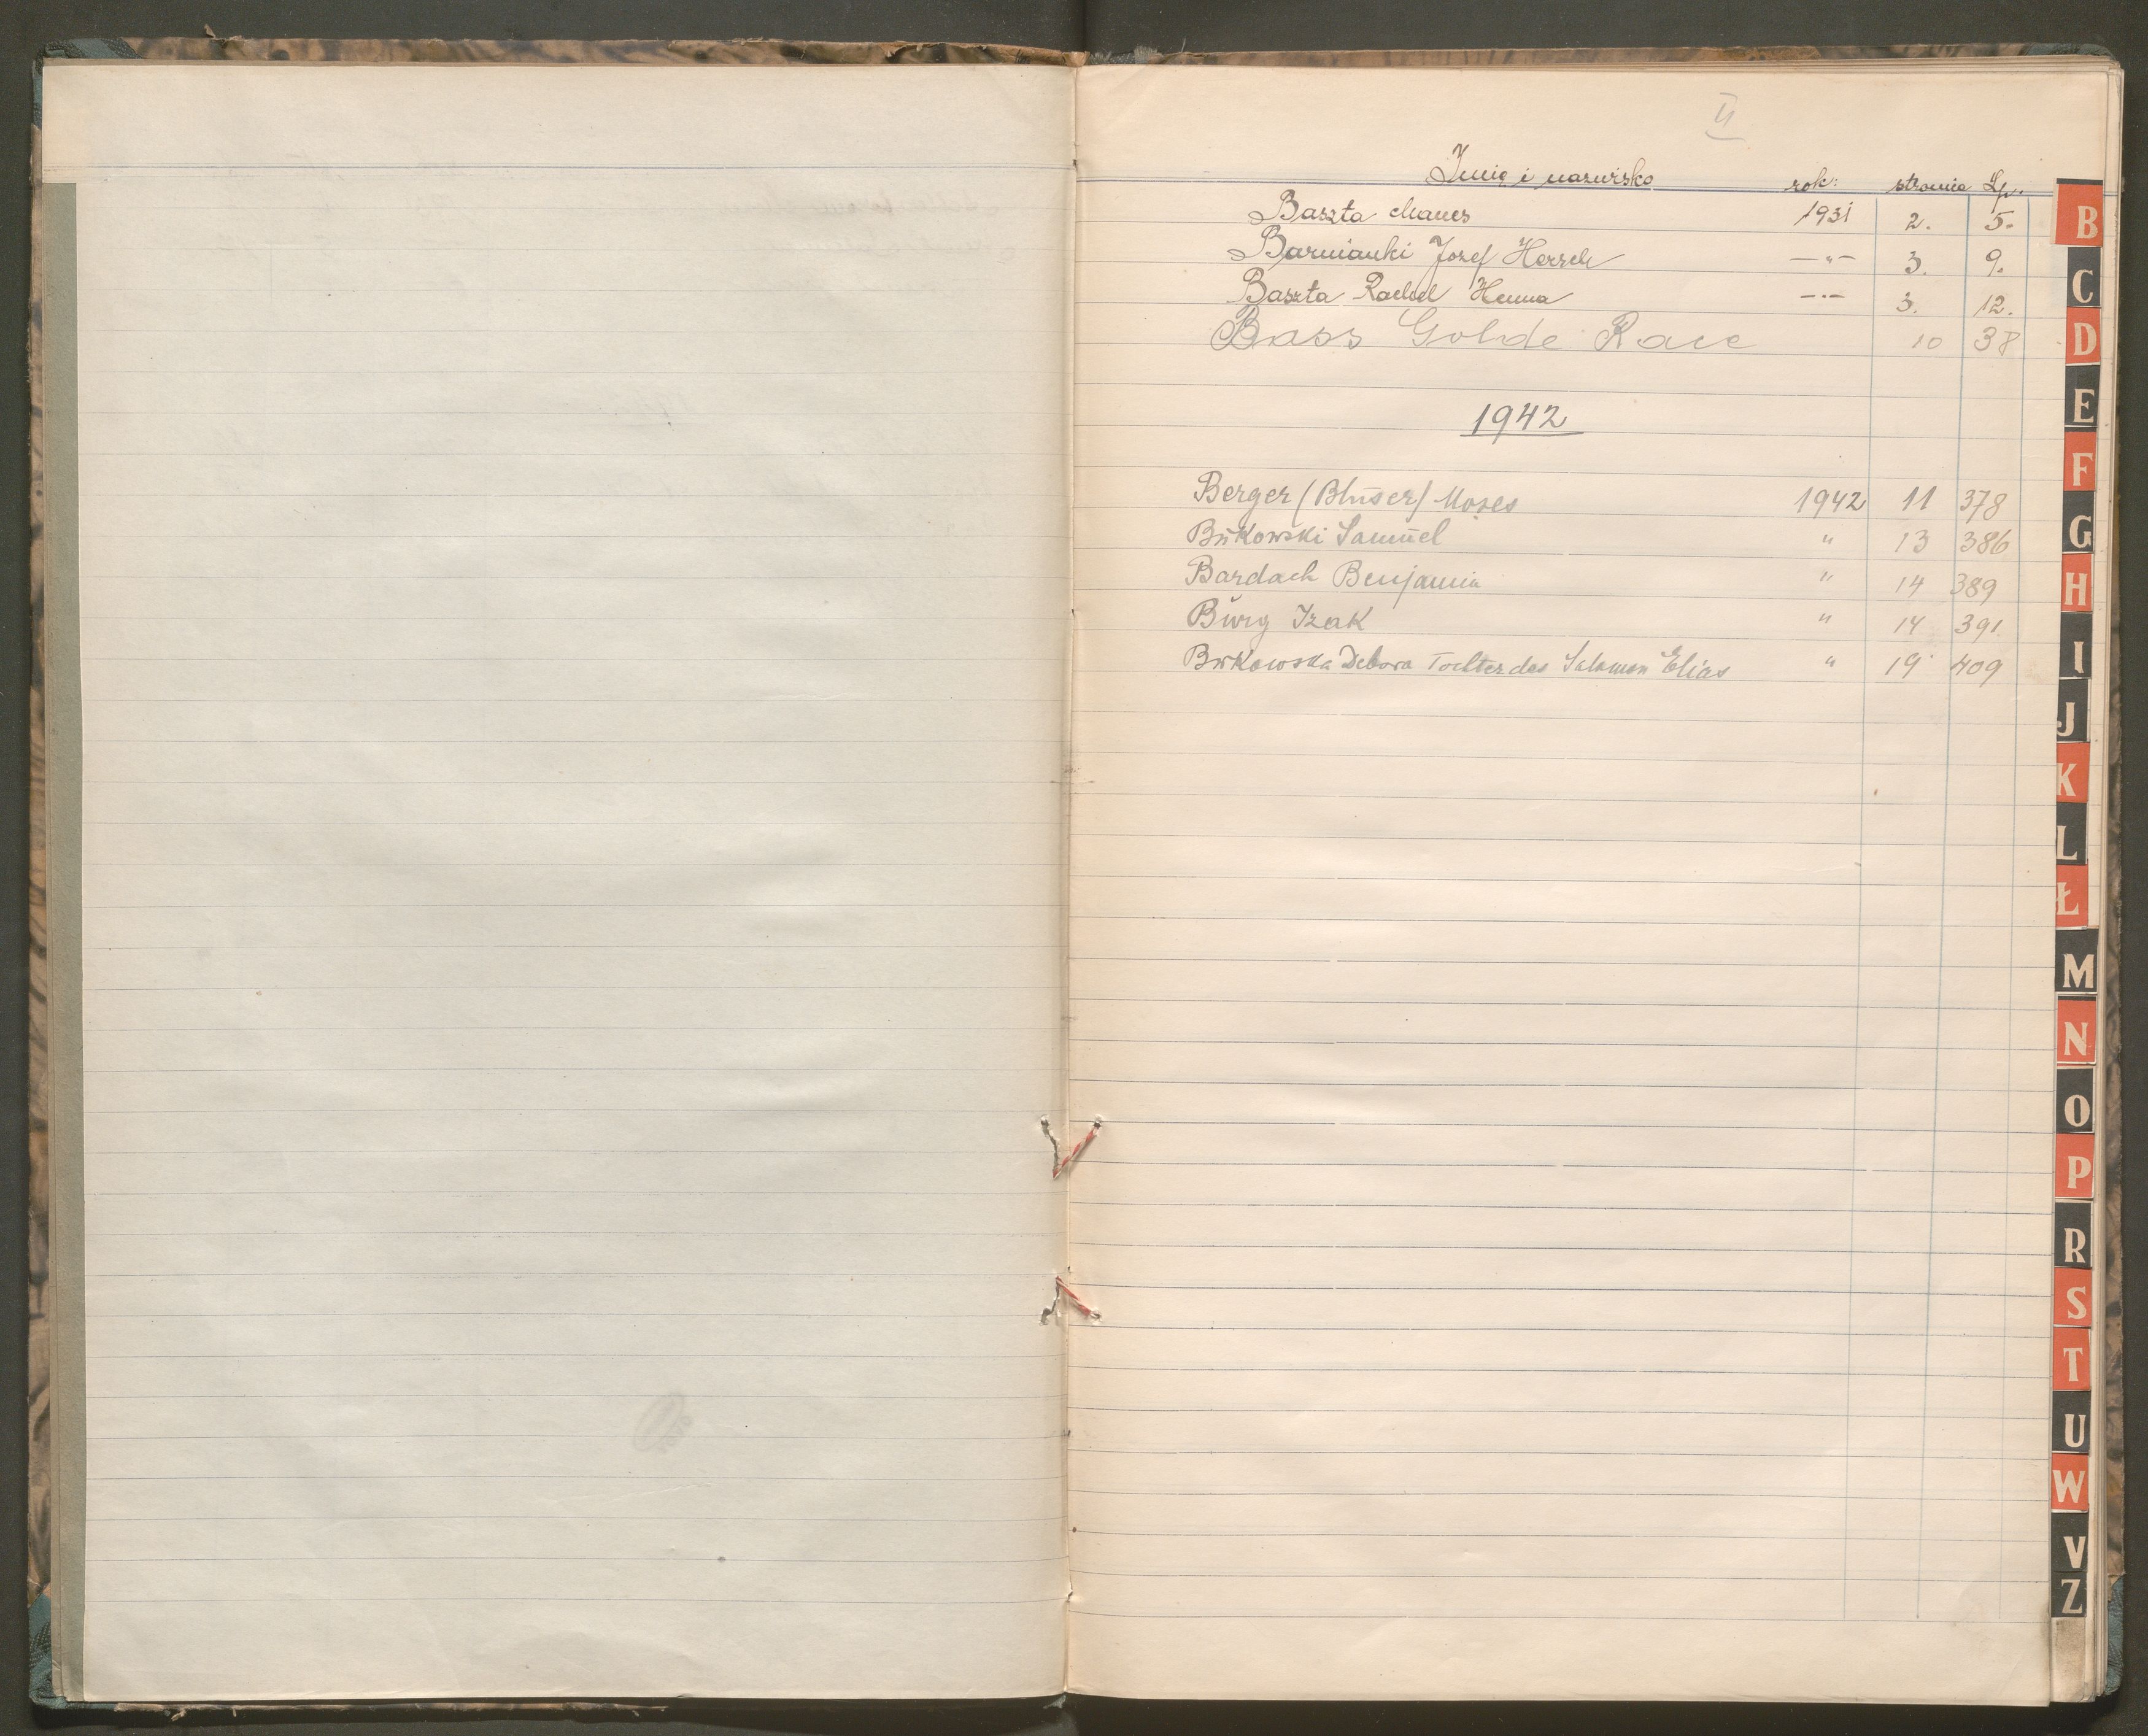 II
Imię i nazwisko rok: strona Lp.
Baszta Manes 1931 2. 5.
Barmianki Josef Hersch —"— 3. 9.
Baszta Rachel Henna —"— 3. 12.
Bass Golde Race 10 38
1942
Berger (Blūser) Moses 1942 11 378
Būkowski Samūel " 13 386
Bardach Benjamin " 14 389
Būrg Izak " 14 391
Būkowska Debora Tochter des Salomon Elias " 19 409
B
C
D
E
F
G
H
I
J
K
L
Ł
M
N
O
P
R
S
T
U
W
V
Z